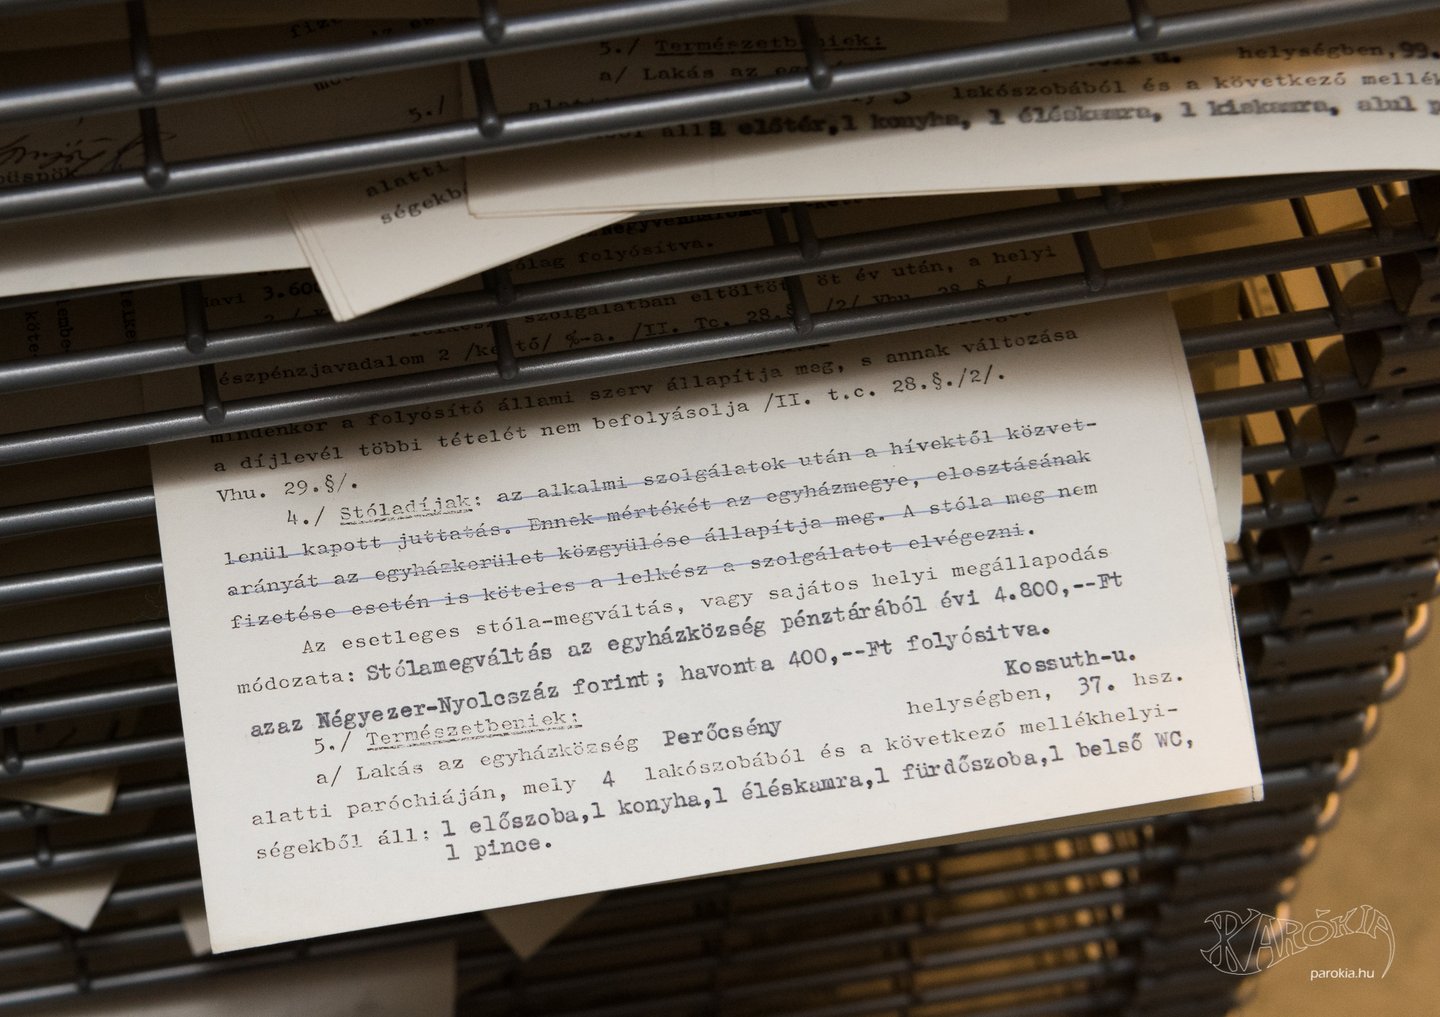 5./ Természetbeniek:
a/ Lakás az
helységben, 99.
lakószobából és a következő mellék
1 előtér, 1 konyha, 1 éléskamra, 1 kiskamra, alul
5./
alatti
ségekb
püspök
folyósítva.
havi 3.60
szolgálatban eltöltöt öt év után, a helyi
észpénzjavadalom 2 /ke tő/ %-a. /II. Tc. 28.§ /2/ Vhu. 28.§./
mindenkor a folyósító állami szerv állapítja meg, s annak változása
a díjlevél többi tételét nem befolyásolja /II. t.c. 28.§./2/.
Vhu. 29.§/.
4./ Stóladíjak: az alkalmi szolgálatok után a hívektől közvet-
lenül kapott juttatás. Ennek mértékét az egyházmegye, elosztásának
arányát az egyházkerület közgyülése állapítja meg. A stóla meg nem
fizetése esetén is köteles a lelkész a szolgálatot elvégezni.
Az esetleges stóla-megváltás, vagy sajátos helyi megállapodás
módozata: Stólamegváltás az egyházközség pénztárából évi 4.800,--Ft
azaz Négyezer-Nyolcszáz forint; havonta 400,--Ft folyósitva.
5./ Természetbeniek:
Kossuth-u.
a/ Lakás az egyházközség Perőcsény helységben, 37. hsz.
alatti paróchiáján, mely 4 lakószobából és a következő mellékhelyi-
ségekből áll: 1 előszoba,1 konyha,1 éléskamra,1 fürdőszoba,1 belső WC,
1 pince.
PARÓKIA
parokia.hu